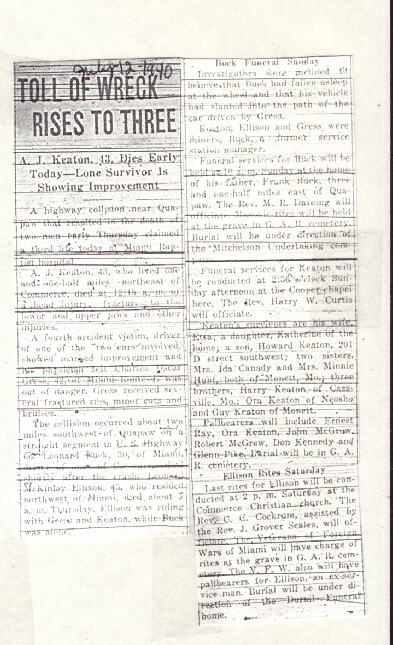 July 12-1940
TOLL OF WRECK
RISES TO THREE
A. J. Keaton, 43, Dies Early
Today—Lone Survivor Is
Showing Improvement
A highway collision near Qua-
paw that resulted in the death of
two men early Thursday claimed
a third life today at Miami Bap-
tist hospital.
A. J. Keaton, 43, who lived one
and one-half miles northeast of
Commerce, died at 12:15 a. m. of
head injury, fractures to the
lower and upper jaws and other
injuries.
A fourth accident victim, driver
of one of the two cars involved,
showed marked improvement and
his physician felt Charles
Gress, 42, of Miami Route 1, was
out of danger. Gress received sev-
eral fractured ribs, minor cuts and
bruises.
The collision occurred about two
miles southwest of Quapaw on a
straight segment in U. S. Highway
Leonard Buck, 30, of Miami,
shortly after the crash. Leonard
McKinley Ellison, 43, who resided
northwest of Miami, died about 5
a. m. Thursday. Ellison was riding
with Gress and Keaton, while Buck
was alone.
Buck Funeral Sunday
Investigators were inclined to
believe that Buck had fallen asleep
at the wheel and that his vehicle
had slanted into the path of the
car driven by Gress.
Keaton, Ellison and Gress, were
miners, Buck, a former service
station manager.
Funeral services for Buck will be
held at 10 a. m. Sunday at the home
of his father, Frank Buck, three
and one-half miles east of Qua-
paw. The Rev. M. R. will
officiate. Masonic rites will be held
at the grave in G. A. R. cemetery.
Burial will be under direction of
the Mitchelson Undertaking com-
Funeral services for Keaton will
be conducted at 2:30 o'clock Sun-
day afternoon at the Cooper chapel
here. The Rev. Harry W. Curtis
will officiate.
Keaton's survivors are his wife,
Etta; a daughter, Katherine of the
home; a son, Howard Keaton, 201
D street southwest; two sisters,
Mrs. Ida Canady and Mrs. Minnie
Hunt, both of Monett, Mo.; three
brothers, Harry Keaton of Cass-
ville, Mo., Ora Keaton of Neosho
and Guy Keaton of Monett.
Pallbearers will include Ernest
Ray, Ora Keaton, John McGrew,
Robert McGrew, Don Kennedy and
Glenn Pike. Burial will be in G. A.
R. cemetery.
Ellison Rites Saturday
Last rites for Ellison will be con-
ducted at 2 p. m. Saturday at the
Commerce Christian church. The
Rev. C. C. Cockrom, assisted by
the Rev. J. Grover Scales, will of-
ficiate. The Veterans of Foreign
Wars of Miami will have charge of
rites at the grave in G. A. R. cem-
etery. The V. F. W. also will have
pallbearers for Ellison, an ex-ser-
vice man. Burial will be under di-
rection of the Durnil Funeral
home.